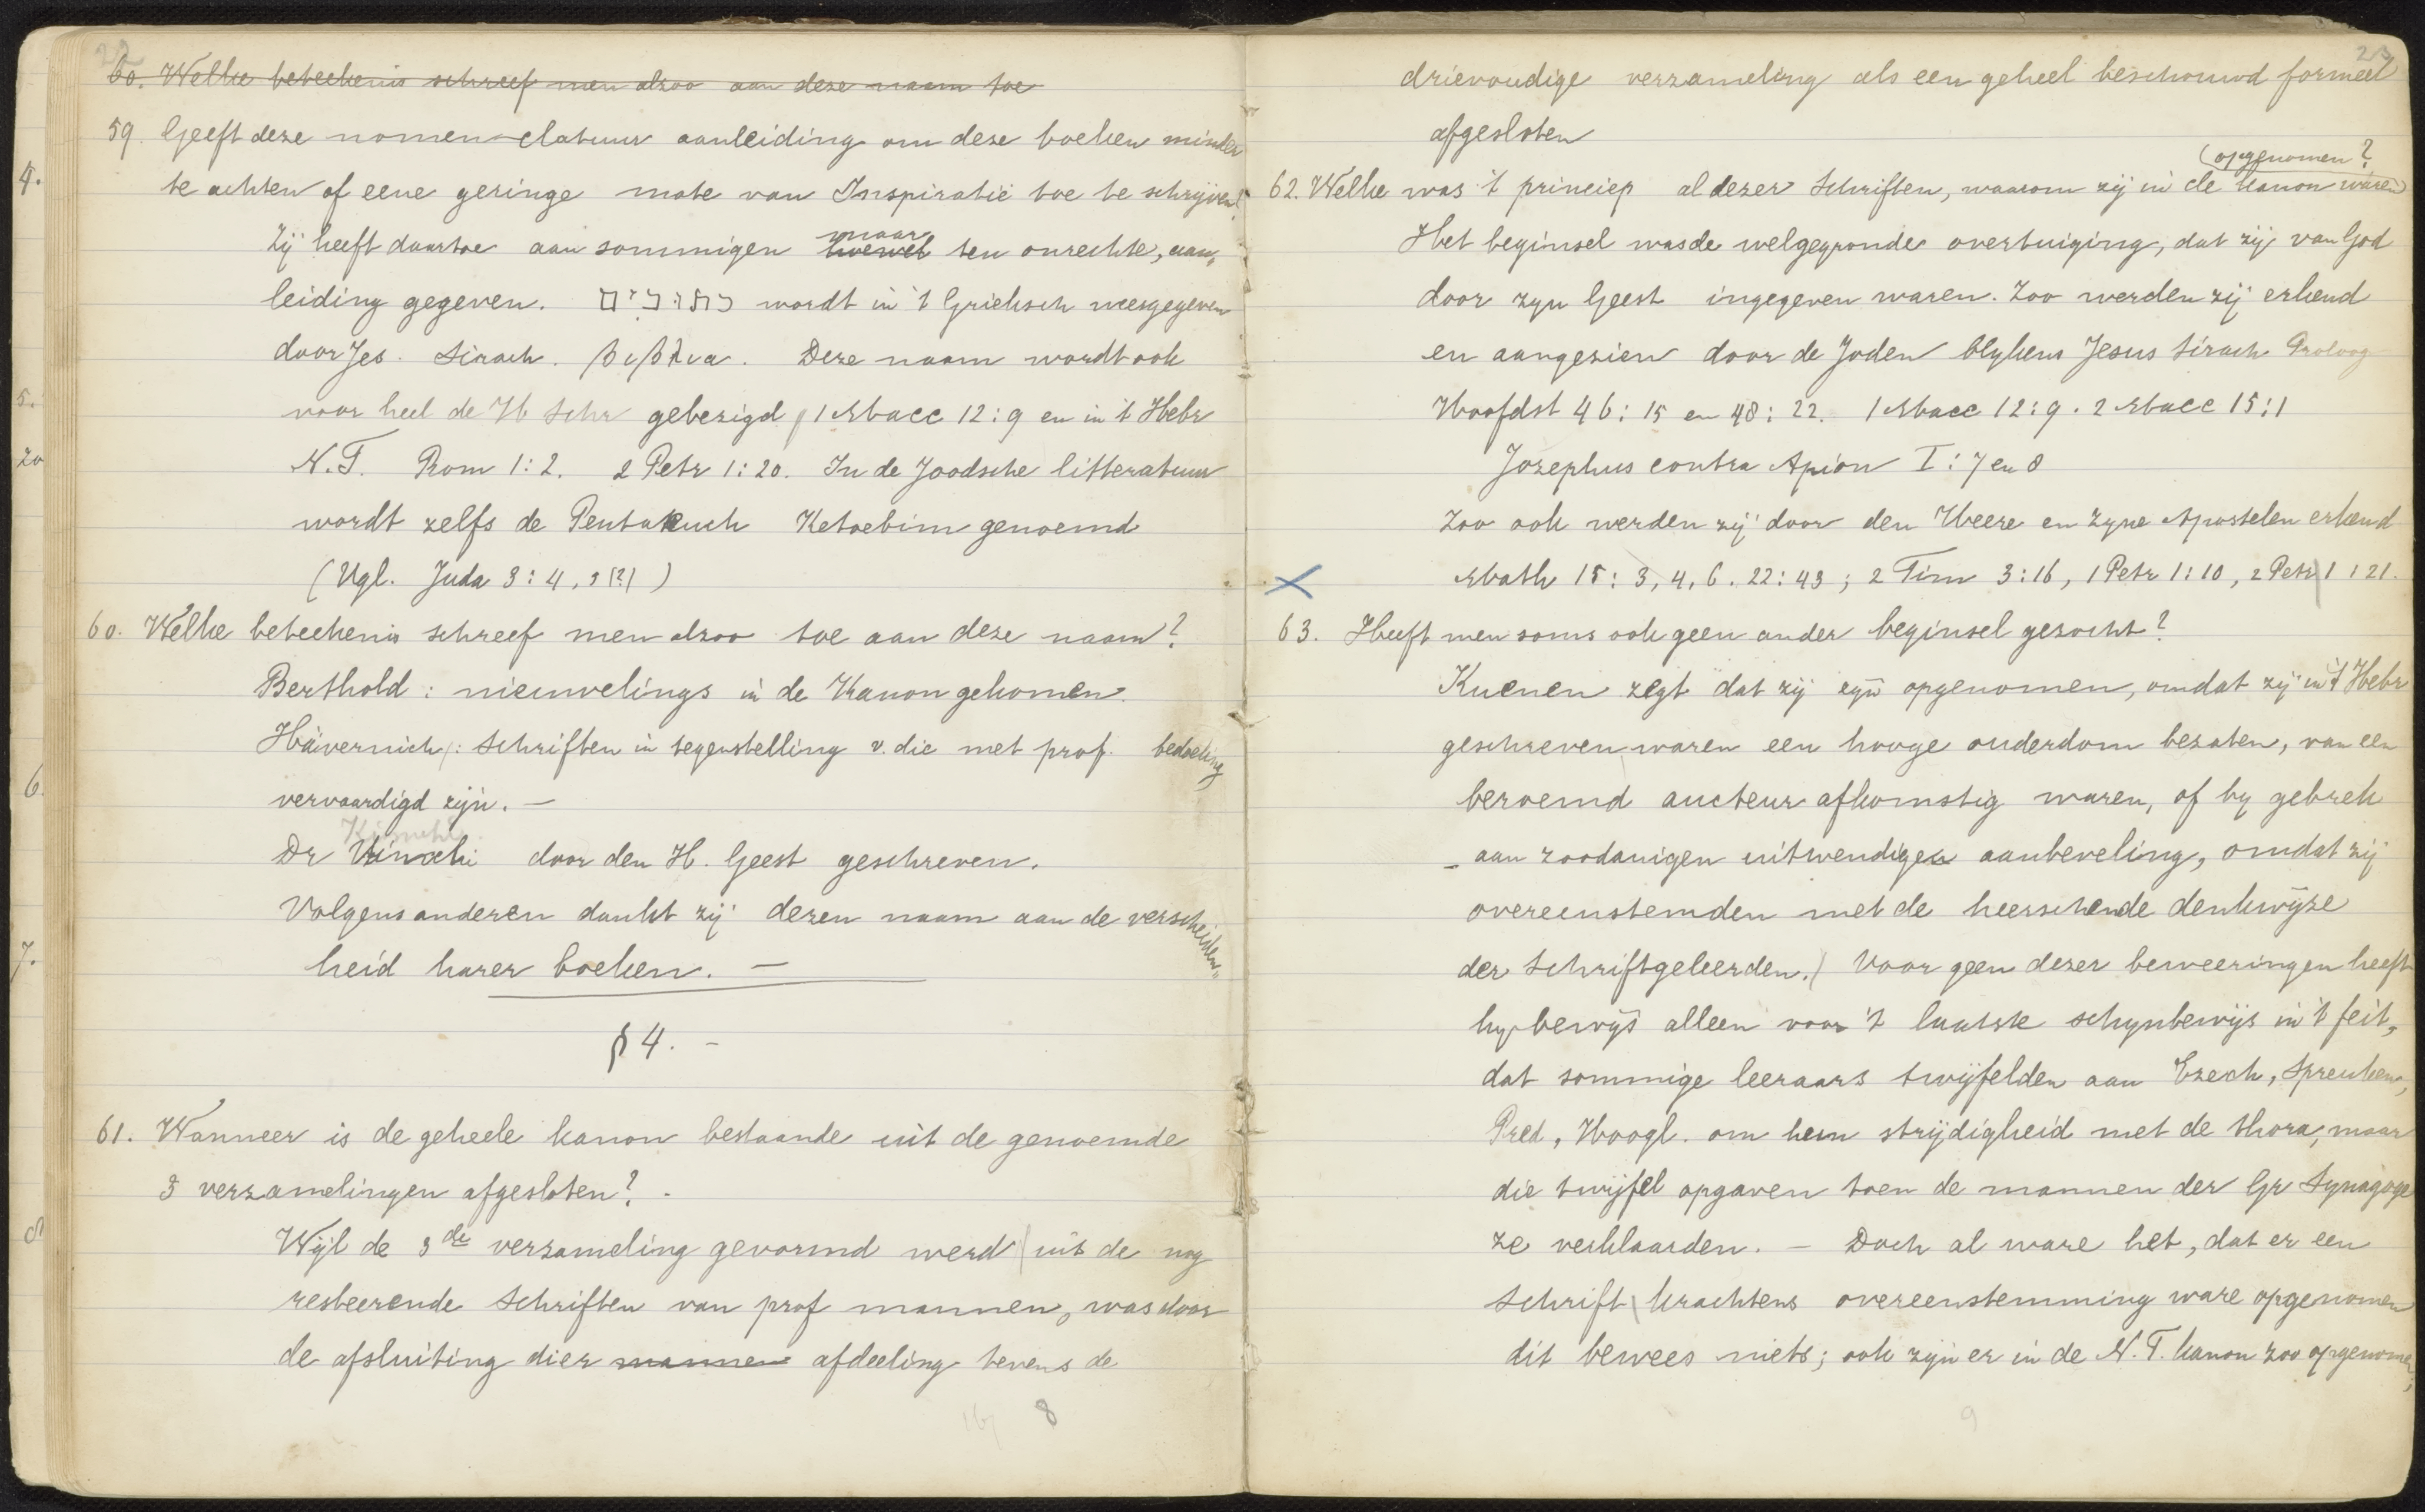 22
60. Welke beteekenis schreef men alzoo aan deze naam toe
59. Geeft deze nomen-clatuur aanleiding om deze boeken minder
te achten of eene geringe mate van Inspiratië toe te schrijven?
Zij heeft daartoe aan sommigen hoewel maar ten onrechte, aan-
leiding gegeven. כתובים wordt in 't Grieksch weergegeven
door Jes. Sirach. βιβλια. Deze naam wordt ook
voor heel de H Schr gebezigd, 1 Macc 12:9 en in 't Hebr
N.T. Rom 1:2. 2 Petr 1:20. In de Joodsche litteratuur
wordt zelfs de Pentateuch Ketoebim genoemd
(Vgl. Juda 3:4, 5 (?) )
60. Welke beteekenis schreef men alzoo toe aan deze naam?
Berthold: nieuwelings in de Kanon gekomen.
Hävernich: Schriften in tegenstelling v. die met prof. bedoeling
vervaardigd zijn. —
Kimchi
Dr Kimchi door den H. Geest geschreven.
Volgens anderen dankt zij dezen naam aan de verscheiden-
heid harer boeken. —
§ 4. -
61. Wanneer is de geheele kanon bestaande uit de genoemde
3 verzamelingen afgesloten? -
Wijl de 3de verzameling gevormd werd uit de nog
resteerende Schriften van prof mannen, was door
de afsluiting dier mannen afdeeling tevens de
8
23
drievoudige verzameling als een geheel beschouwd formeel
afgesloten
(opgenomen?
62. Welke was 't princiep al dezer Schriften, waarom zij in de kanon waren
Het beginsel was de welgegronde overtuiging, dat zij van God
door zyn Geest ingegeven waren. Zoo werden zij erkend
en aangezien door de Joden blykens Jesus Sirach Proloog
Hoofdst 46:15 en 48:22. 1 Macc 12:9. 2 Macc 15:1
Jozephus contra Apion I:7 en 8
Zoo ook werden zij door den Heere en zyne Apostelen erkend
Math 15:3, 4, 6. 22:43; 2 Tim 3:16, 1 Petr 1:10, 2 Petr 1:21.
63. Heeft men soms ook geen ander beginsel gezocht?
Kuenen zegt dat zij zyn opgenomen, omdat zij in 't Hebr
geschreven waren een hooge ouderdom bezaten, van een
beroemd aucteur afkomstig waren, of by gebrek
aan zoodanigen uitwendigen aanbeveling, omdat zij
overeenstemden met de heerschende denkwijze
der Schriftgeleerden. Voor geen dezer beweeringen heeft
hy bewijs alleen voor 't laatste schynbewijs in 't feit,
dat sommige leeraars twijfelden aan Ezech, Spreuken,
Pred, Hoogl. om hem strijdigheid met de thora, maar
die twijfel opgaven toen de mannen der Gr Synagoge
ze verklaarden. — Doch al ware het, dat er een
Schrift krachtens overeenstemming ware opgenomen
dit bewees niets; ook zijn er in de N.T. kanon zoo opgenomen,
9
4.
5.
20
6.
7.
8